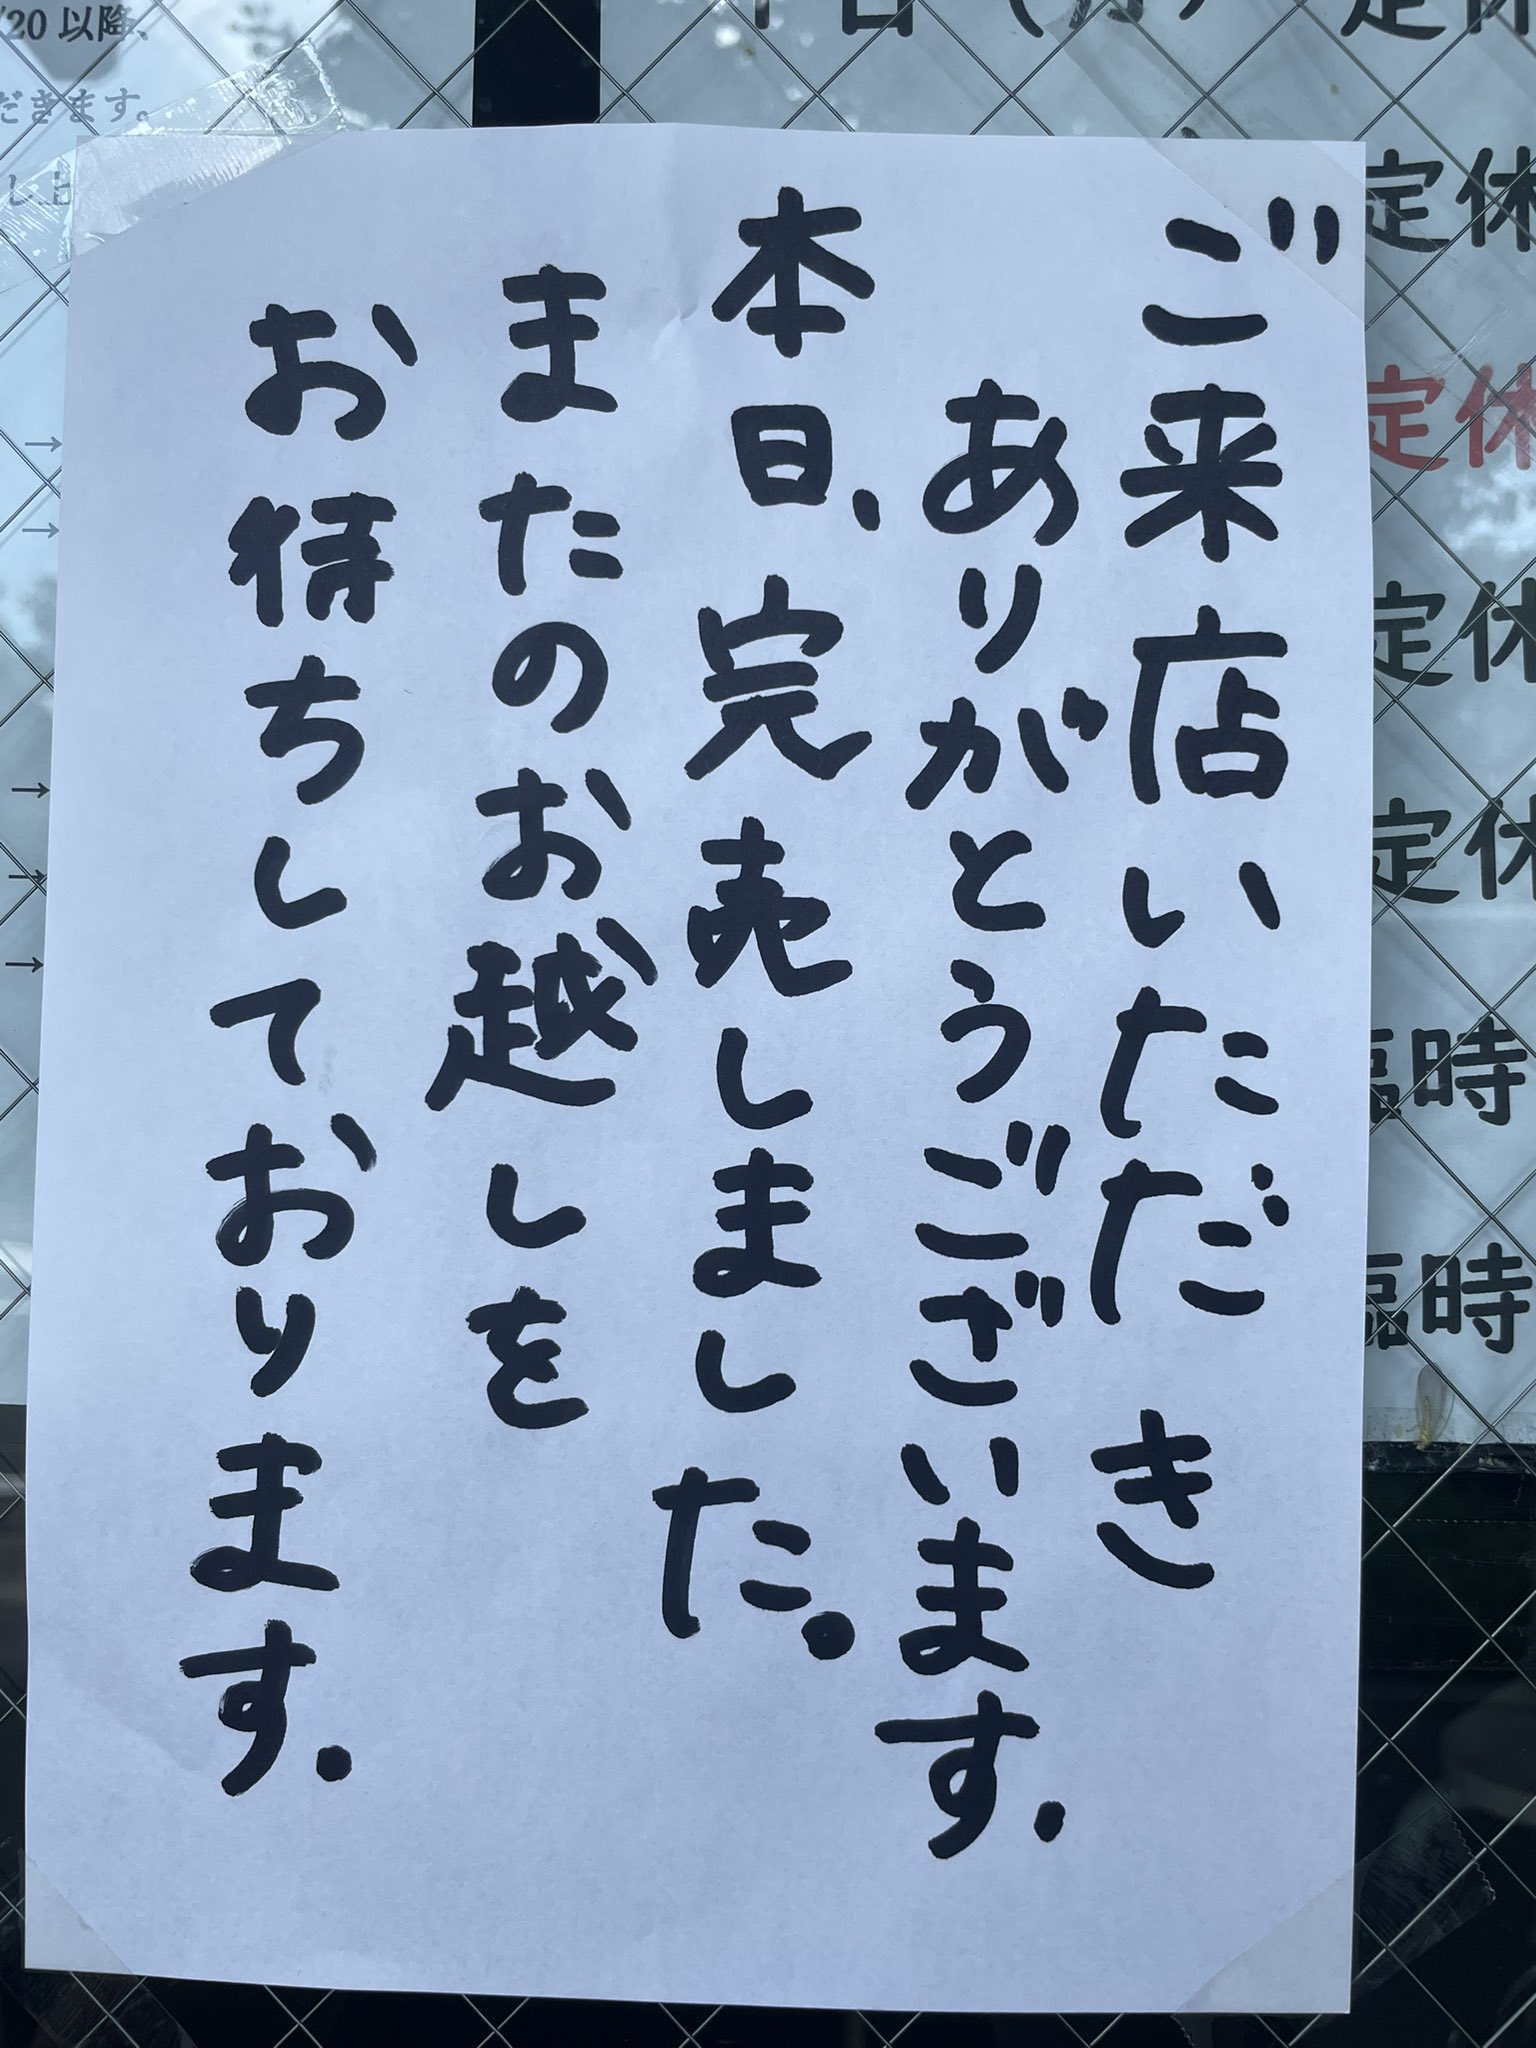 ご来店いただき
ありがとうございます.
本日、完売しました。
またのお越しを
お待ちしております.
20以降、
だきます。
し上
日(月)定休
定休
定休
定休
定休
臨時
臨時
→
→
→
→
→